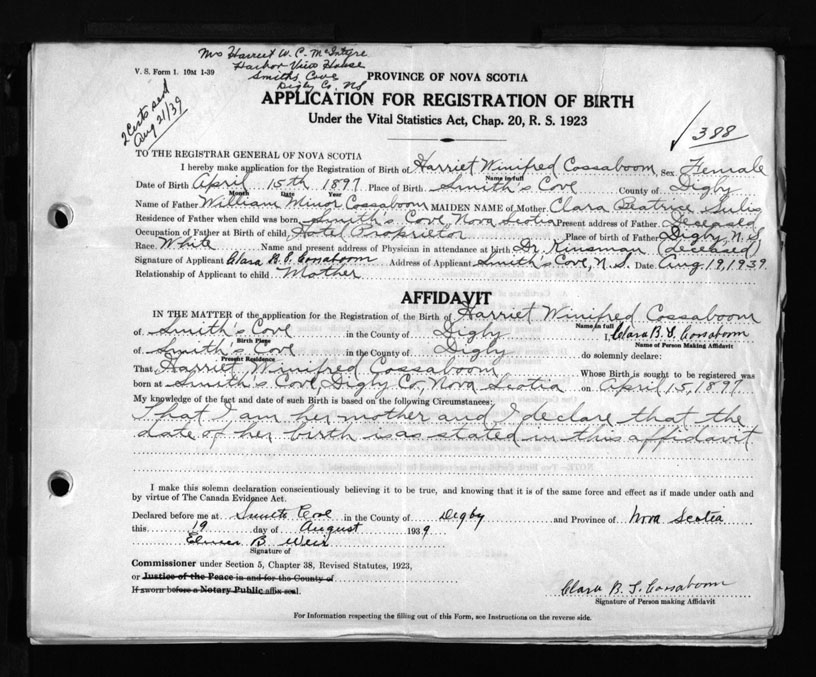 Mrs Harriet W. C. McIntyre
Harbor View House
Smiths Cove
Digby Co. NS
V. S. Form 1. 10M 1-39
2 Certs send
Aug 21/39
PROVINCE OF NOVA SCOTIA
APPLICATION FOR REGISTRATION OF BIRTH
Under the Vital Statistics Act, Chap. 20, R. S. 1923
√388
TO THE REGISTRAR GENERAL OF NOVA SCOTIA
I hereby make application for the Registration of Birth of Harriet Winifred Cossaboom, Sex Female
Name in full
Date of Birth April 15th 1897 Place of Birth Smith's Cove County of Digby
Month Date Year
Name of Father William Minor Cossaboom MAIDEN NAME of Mother Clara Beatrice Sulis
Residence of Father when child was born Smith's Cove, Nova Scotia Present address of Father Deceased
Occupation of Father at Birth of child, Hotel Proprietor Place of birth of Father Digby, N.S
Race. White Name and present address of Physician in attendance at birth Dr. Kinsman (deceased)
Signature of Applicant Clara B. S. Cossaboom Address of Applicant Smith's Cove, N.S. Date Aug 19, 1939.
Relationship of Applicant to child Mother
AFFIDAVIT
IN THE MATTER of the application for the Registration of the Birth of Harriet Winifred Cossaboom
Name in full
of Smith's Cove in the County of Digby I, Clara B. S. Cossaboom
Birth Place Name of Person Making Affidavit
of Smith's Cove in the County of Digby do solemnly declare:
Present Residence
That Harriet Winifred Cossaboom Whose Birth is sought to be registered was
born at Smith's Cove, Digby Co, Nova Scotia on April 15, 1897
My knowledge of the fact and date of such Birth is based on the following Circumstances:
That I am her mother and I declare that the
date of her birth is as stated in this affidavit
I make this solemn declaration conscientiously believing it to be true, and knowing that it is of the same force and effect as if made under oath and
by virtue of The Canada Evidence Act.
Declared before me at Smith Cove in the County of Digby and Province of Nova Scotia
this 19 day of August 1939
Elmer B. Weir
Signature of
Commissioner under Section 5, Chapter 38, Revised Statutes, 1923,
or Justice of the Peace in and for the County of
If sworn before a Notary Public affix seal.
Clara B. S. Cossaboom
Signature of Person making Affidavit
For Information respecting the filling out of this Form, see Instructions on the reverse side.